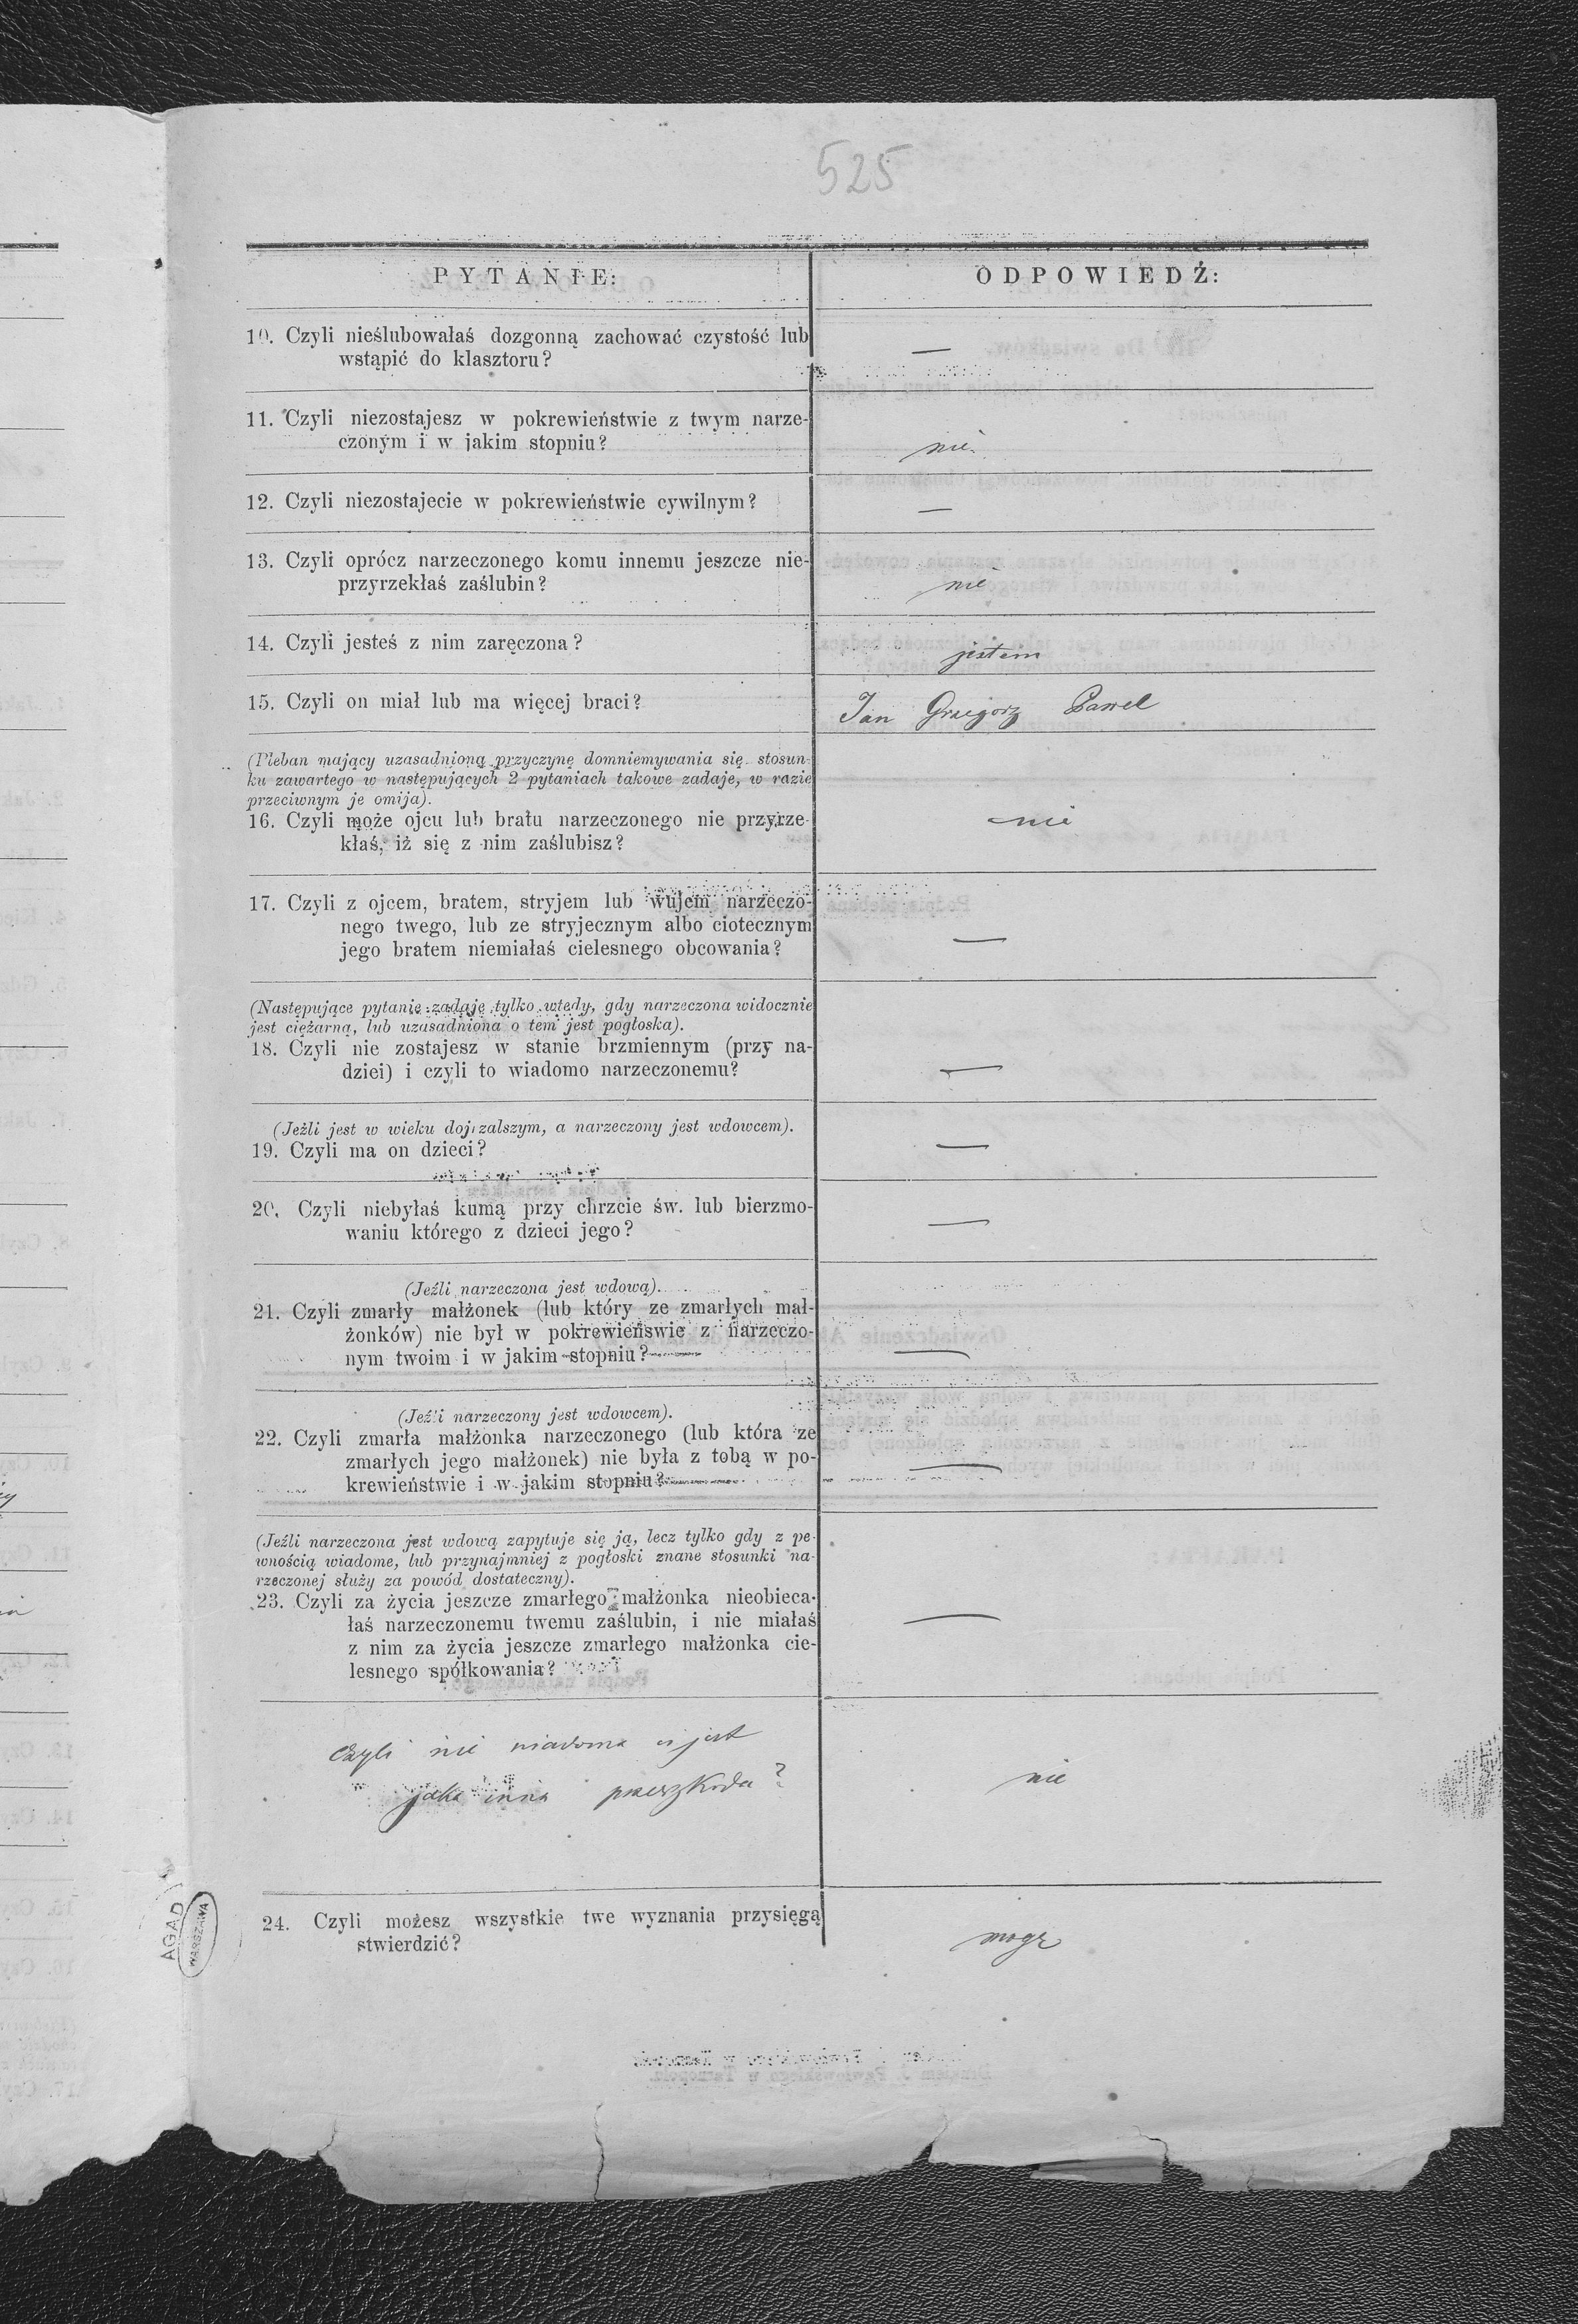 525
PYTANIE:
ODPOWIEDŹ:
10. Czyli nieślubowałaś dozgonną zachować czystość lub
wstąpić do klasztoru?
—
11. Czyli niezostajesz w pokrewieństwie z twym narze-
czonym i w jakim stopniu?
nie.
12. Czyli niezostajecie w pokrewieństwie cywilnym?
—
13. Czyli oprócz narzeczonego komu innemu jeszcze nie-
przyrzekłaś zaślubin?
nie
14. Czyli jesteś z nim zaręczona?
jestem
15. Czyli on miał lub ma więcej braci?
Jan Grzegorz Paweł
(Pleban mający uzasadnioną przyczynę domniemywania się stosun-
ku zawartego w następujących 2 pytaniach takowe zadaje, w razie
przeciwnym je omija).
16. Czyli może ojcu lub bratu narzeczonego nie przyrze-
kłaś, iż się z nim zaślubisz?
nie
17. Czyli z ojcem, bratem, stryjem lub wujem narzeczo-
nego twego, lub ze stryjecznym albo ciotecznym
jego bratem niemiałaś cielesnego obcowania?
—
(Następujące pytanie zadaje tylko wtedy, gdy narzeczona widocznie
jest ciężarną, lub uzasadniona o tem jest pogłoska).
18. Czyli nie zostajesz w stanie brzmiennym (przy na-
dziei) i czyli to wiadomo narzeczonemu?
—
(Jeżli jest w wieku dojrzalszym, a narzeczony jest wdowcem).
19. Czyli ma on dzieci?
—
20. Czyli niebyłaś kumą przy chrzcie św. lub bierzmo-
waniu którego z dzieci jego?
—
(Jeźli narzeczona jest wdową).
21. Czyli zmarły małżonek (lub który ze zmarłych mał-
żonków) nie był w pokrewieńswie z narzeczo-
nym twoim i w jakim stopniu?
—
(Jeźli narzeczony jest wdowcem).
22. Czyli zmarła małżonka narzeczonego (lub która ze
zmarłych jego małżonek) nie była z tobą w po-
krewieństwie i w jakim stopniu?
—
(Jeźli narzeczona jest wdową zapytuje się ją, lecz tylko gdy z pe-
wnością wiadome, lub przynajmniej z pogłoski znane stosunki na-
rzeczonej służy za powód dostateczny).
23. Czyli za życia jeszcze zmarłego małżonka nieobieca-
łaś narzeczonemu twemu zaślubin, i nie miałaś
z nim za życia jeszcze zmarłego małżonka cie-
lesnego spółkowania?
—
Czyli nie wiadoma ci jest
jaka inna przeszkoda?
nie
24. Czyli możesz wszystkie twe wyznania przysięgą
stwierdzić?
mogę
AGAD
WARSZAWA